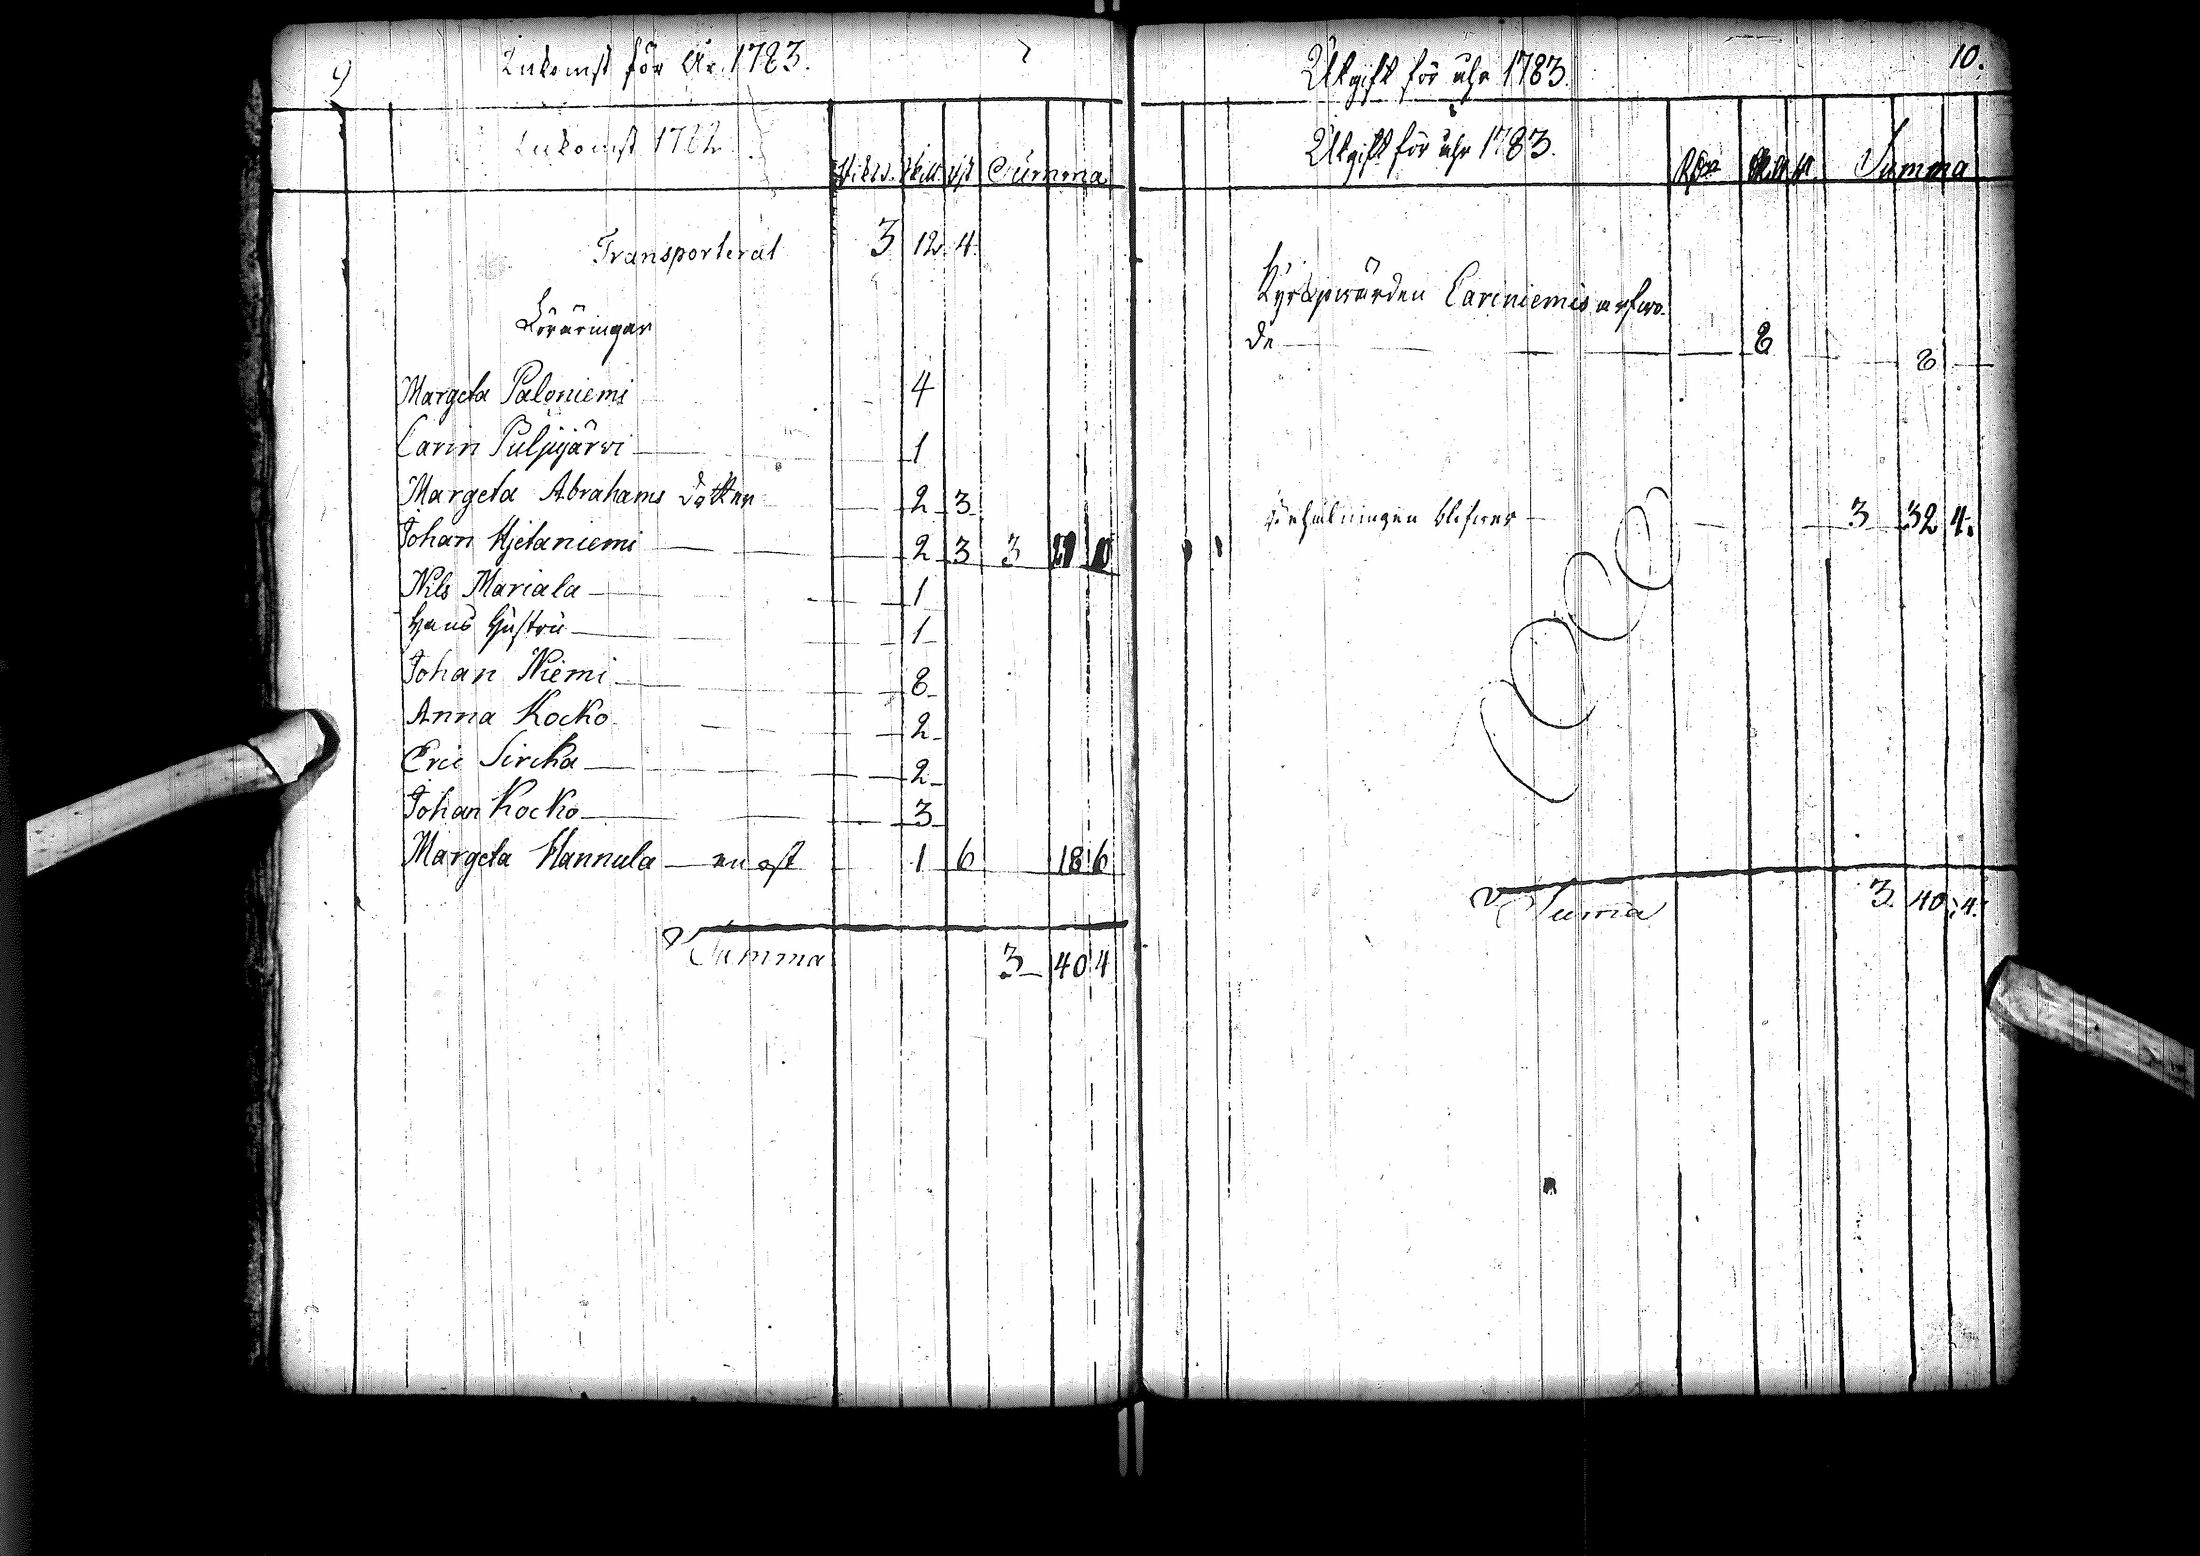 9
Inkomst för År 1783.
Inkomst 1782
Riksd. Skill. rst Summa
Transporterat 3 12 4
Föräringar
Margeta Paloniemi 4
Carin Puljujärvi 1
Margeta Abrahams dotter 2 3
Johan Hjetaniemi 2 3 3 21 10
Nils Mariala 1
Hans Hustru 1
Johan Niemi 8
Anna Kocko 2
Eric Sircka 2
Johan Kocko 3
Margeta Hannula 1 6 18 6
Summa 3 40 4
10.
Utgift för åhr 1783.
Utgift för åhr 1783.
Summa
Kyrkowärden Lariniemis arfwo-
de 8 8
Behålningen blifwer 3 32 4.
Suma 3. 40. 4.